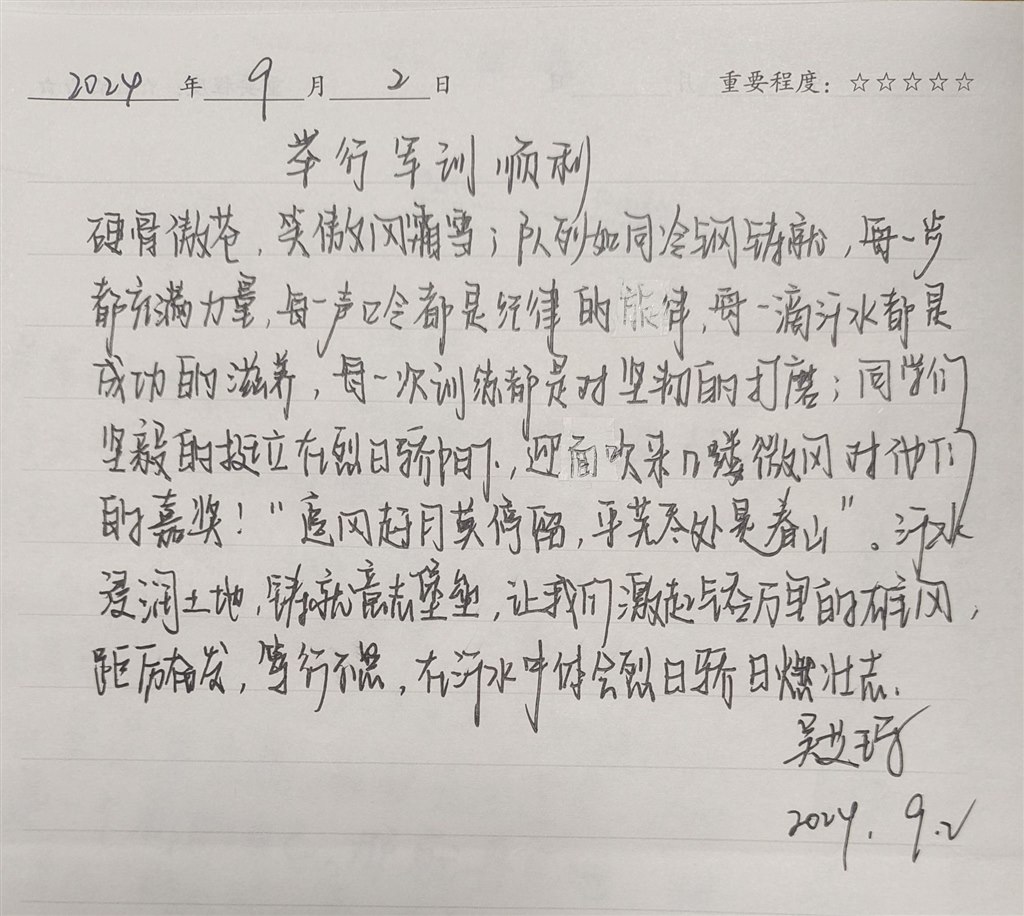 2024年9月2日 重要程度：☆☆☆☆☆
举行军训顺利
硬骨傲苍，笑傲风霜雪；队列如同冷钢铸就，每一步
都充满力量，每一声口令都是纪律的旋律，每一滴汗水都是
成功的滋养，每一次训练都是对坚韧的打磨；同学们
坚毅的挺立在烈日骄阳下，迎面吹来几缕微风对他们
的嘉奖！“追风赶月莫停留，平芜尽处是春山”。汗水
浸润土地，铸就意志堡垒，让我们激起铃万里的雄风，
踔厉奋发，笃行不怠，在汗水中体会烈日骄日燃壮志.
吴艾
2024.9.2